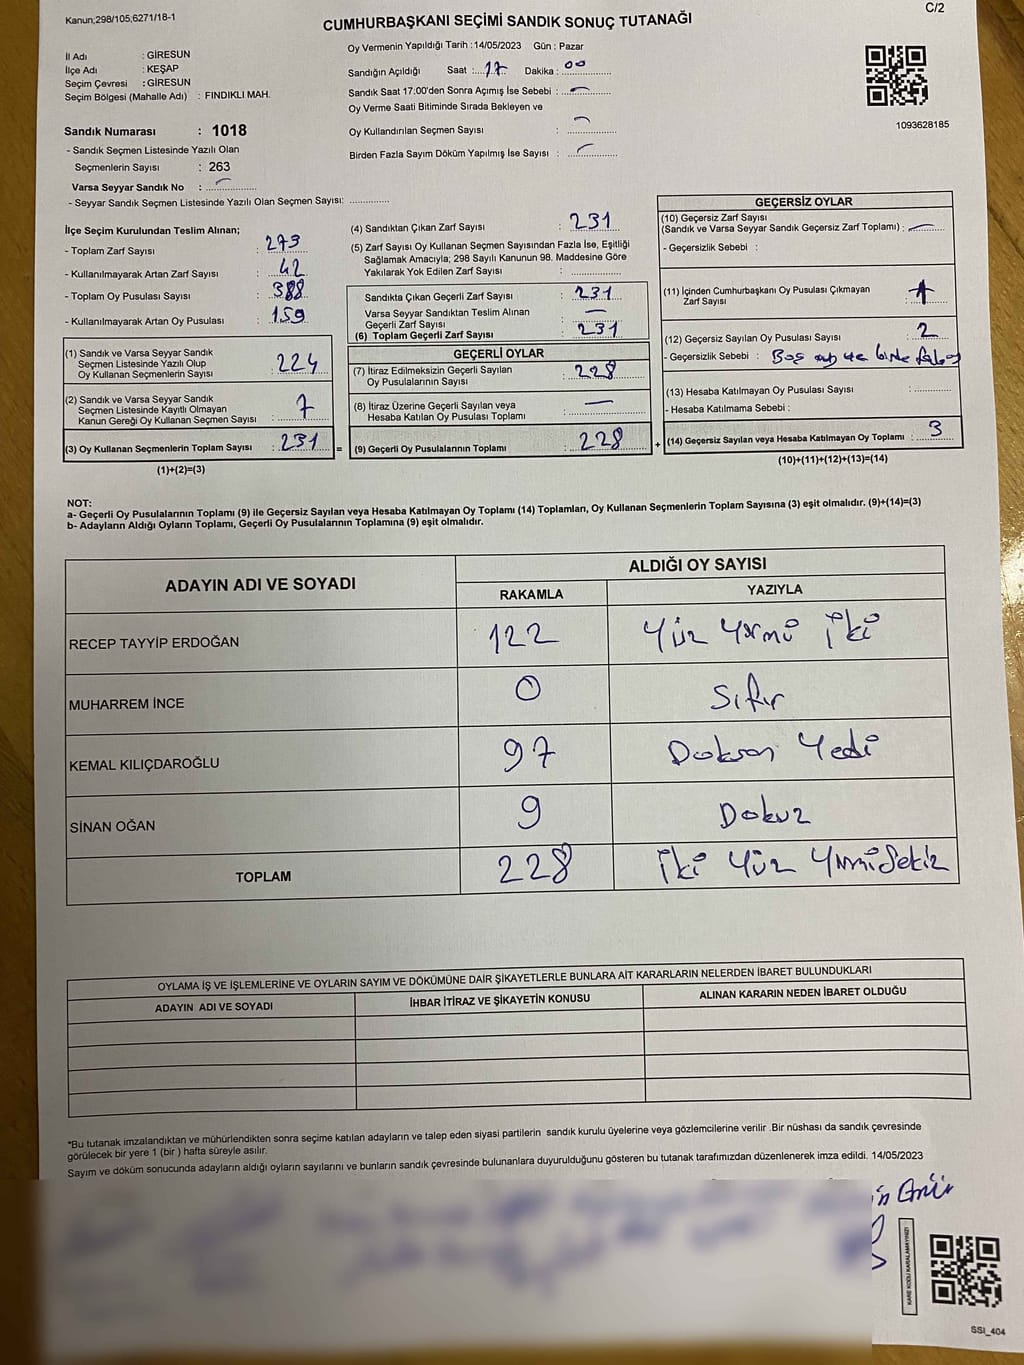 Kanun;298/105;6271/18-1
C/2
CUMHURBAŞKANI SEÇİMİ SANDIK SONUÇ TUTANAĞI
Oy Vermenin Yapıldığı Tarih :14/05/2023 Gün : Pazar
İl Adı : GİRESUN
İlçe Adı : KEŞAP
Seçim Çevresi : GİRESUN
Seçim Bölgesi (Mahalle Adı) : FINDIKLI MAH.
Sandığın Açıldığı Saat : 17 Dakika : 00
Sandık Saat 17:00'den Sonra Açımış İse Sebebi : —
Oy Verme Saati Bitiminde Sırada Bekleyen ve
Oy Kullandırılan Seçmen Sayısı : —
Birden Fazla Sayım Döküm Yapılmış İse Sayısı : —
1093628185
Sandık Numarası : 1018
- Sandık Seçmen Listesinde Yazılı Olan
Seçmenlerin Sayısı : 263
Varsa Seyyar Sandık No : —
- Seyyar Sandık Seçmen Listesinde Yazılı Olan Seçmen Sayısı: ..............
İlçe Seçim Kurulundan Teslim Alınan;
- Toplam Zarf Sayısı : 273
- Kullanılmayarak Artan Zarf Sayısı : 42
- Toplam Oy Pusulası Sayısı : 388
- Kullanılmayarak Artan Oy Pusulası : 159
(1) Sandık ve Varsa Seyyar Sandık
Seçmen Listesinde Yazılı Olup
Oy Kullanan Seçmenlerin Sayısı : 224
(2) Sandık ve Varsa Seyyar Sandık
Seçmen Listesinde Kayıtlı Olmayan
Kanun Gereği Oy Kullanan Seçmen Sayısı : 7
(3) Oy Kullanan Seçmenlerin Toplam Sayısı : 231 =
(1)+(2)=(3)
(4) Sandıktan Çıkan Zarf Sayısı : 231
(5) Zarf Sayısı Oy Kullanan Seçmen Sayısından Fazla İse, Eşitliği
Sağlamak Amacıyla; 298 Sayılı Kanunun 98. Maddesine Göre
Yakılarak Yok Edilen Zarf Sayısı : ..............
Sandıkta Çıkan Geçerli Zarf Sayısı : 231
Varsa Seyyar Sandıktan Teslim Alınan
Geçerli Zarf Sayısı : —
(6) Toplam Geçerli Zarf Sayısı : 231
GEÇERLİ OYLAR
(7) İtiraz Edilmeksizin Geçerli Sayılan
Oy Pusulalarının Sayısı : 228
(8) İtiraz Üzerine Geçerli Sayılan veya
Hesaba Katılan Oy Pusulası Toplamı : —
(9) Geçerli Oy Pusulalarının Toplamı : 228 +
GEÇERSİZ OYLAR
(10) Geçersiz Zarf Sayısı
(Sandık ve Varsa Seyyar Sandık Geçersiz Zarf Toplamı) : —
- Geçersizlik Sebebi :
(11) İçinden Cumhurbaşkanı Oy Pusulası Çıkmayan
Zarf Sayısı : 1
(12) Geçersiz Sayılan Oy Pusulası Sayısı : 2
- Geçersizlik Sebebi : Boş
(13) Hesaba Katılmayan Oy Pusulası Sayısı : ..............
- Hesaba Katılmama Sebebi :
(14) Geçersiz Sayılan veya Hesaba Katılmayan Oy Toplamı : 3
(10)+(11)+(12)+(13)=(14)
NOT:
a- Geçerli Oy Pusulalarının Toplamı (9) ile Geçersiz Sayılan veya Hesaba Katılmayan Oy Toplamı (14) Toplamları, Oy Kullanan Seçmenlerin Toplam Sayısına (3) eşit olmalıdır. (9)+(14)=(3)
b- Adayların Aldığı Oyların Toplamı, Geçerli Oy Pusulalarının Toplamına (9) eşit olmalıdır.
ADAYIN ADI VE SOYADI
ALDIĞI OY SAYISI
RAKAMLA YAZIYLA
RECEP TAYYİP ERDOĞAN 122 Yüz Yirmi İki
MUHARREM İNCE 0 Sıfır
KEMAL KILIÇDAROĞLU 97 Doksan Yedi
SİNAN OĞAN 9 Dokuz
TOPLAM 228 İki Yüz YirmiSekiz
OYLAMA İŞ VE İŞLEMLERİNE VE OYLARIN SAYIM VE DÖKÜMÜNE DAİR ŞİKAYETLERLE BUNLARA AİT KARARLARIN NELERDEN İBARET BULUNDUKLARI
ADAYIN ADI VE SOYADI İHBAR İTİRAZ VE ŞİKAYETİN KONUSU ALINAN KARARIN NEDEN İBARET OLDUĞU
*Bu tutanak imzalandıktan ve mühürlendikten sonra seçime katılan adayların ve talep eden siyasi partilerin sandık kurulu üyelerine veya gözlemcilerine verilir .Bir nüshası da sandık çevresinde
görülecek bir yere 1 (bir ) hafta süreyle asılır.
Sayım ve döküm sonucunda adayların aldığı oyların sayılarını ve bunların sandık çevresinde bulunanlara duyurulduğunu gösteren bu tutanak tarafımızdan düzenlenerek imza edildi. 14/05/2023
KARE KODU KARALAMAYINIZ!
SSI_404